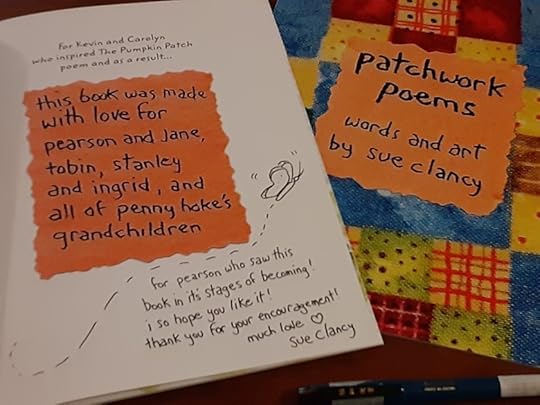 for Kevin and Carolyn
who inspired The Pumpkin Patch
poem and as a result...
this book was made
with love for
pearson and Jane,
tobin, stanley
and ingrid, and
all of penny hoke's
grandchildren
for pearson who saw this
book in it's stages of becoming!
i so hope you like it!
thank you for your encouragement!
much love ♡
Sue Clancy
patchwork
poems
words and art
by sue clancy